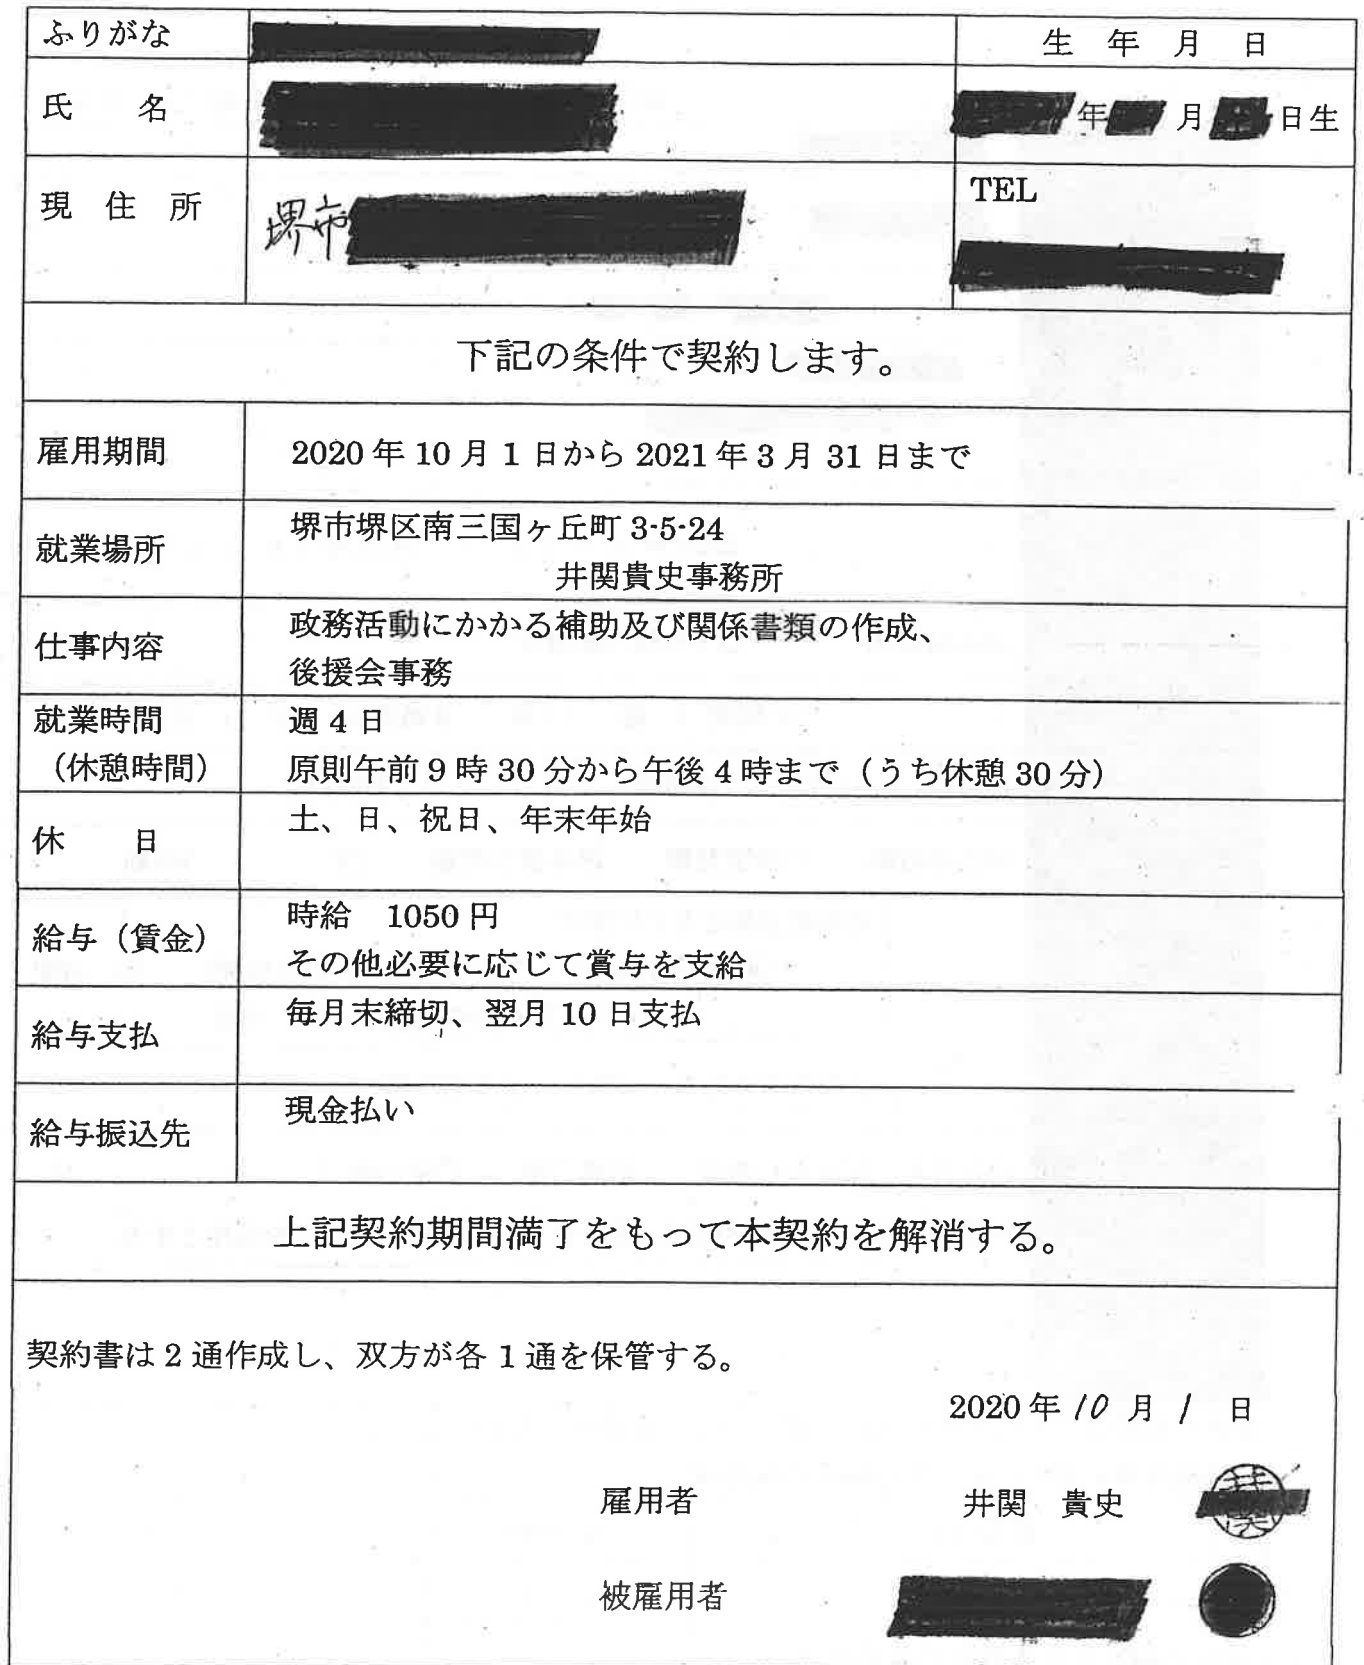 ふりがな
生年月日
氏名
年 月 日生
現住所
堺市
TEL
下記の条件で契約します。
雇用期間
2020年10月1日から2021年3月31日まで
就業場所
堺市堺区南三国ヶ丘町3-5-24
井関貴史事務所
仕事内容
政務活動にかかる補助及び関係書類の作成、
後援会事務
就業時間
(休憩時間)
週4日
原則午前9時30分から午後4時まで(うち休憩30分)
休日
土、日、祝日、年末年始
給与(賃金)
時給 1050円
その他必要に応じて賞与を支給
給与支払
毎月末締切、翌月10日支払
給与振込先
現金払い
上記契約期間満了をもって本契約を解消する。
契約書は2通作成し、双方が各1通を保管する。
2020年10月1日
雇用者 井関 貴史
被雇用者